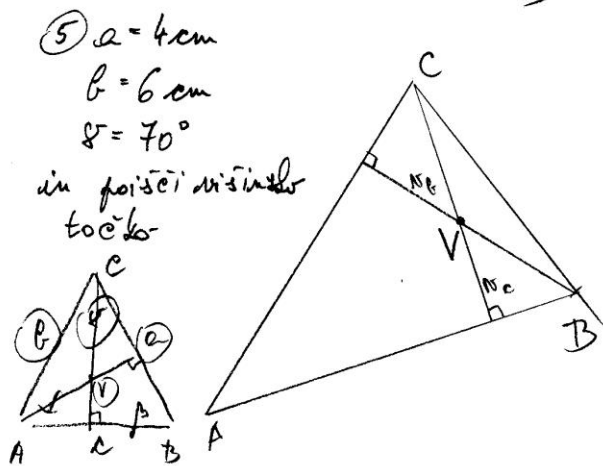 5 a = 4 cm
b = 6 cm
γ = 70°
in poišči višinsko
točko
C
b
γ
a
V
α
β
A
c
B
C
v_b
V
v_c
B
A